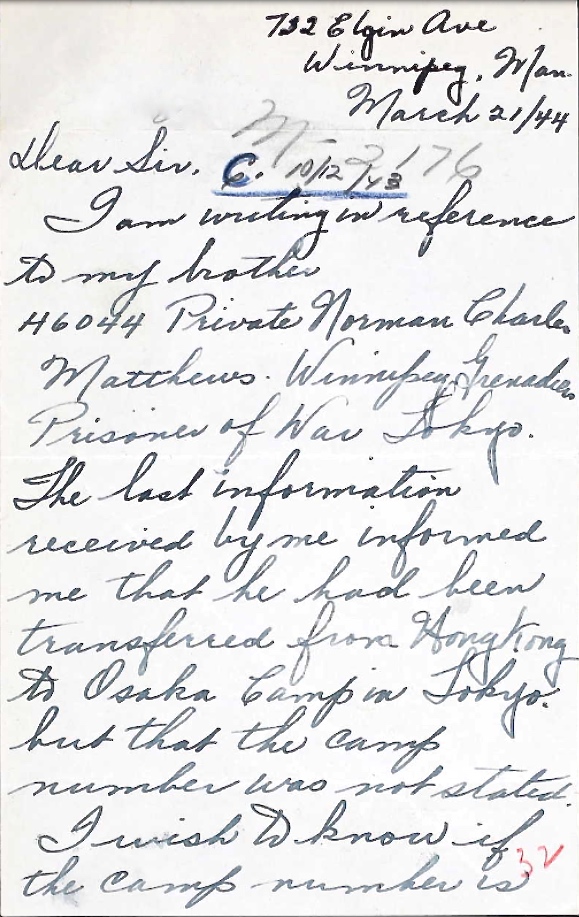 732 Elgin Ave
Winnipeg, Man.
March 21/44
M-2176
Dear Sir.
C. 10/12/43
I am writing in reference
to my brother
H6044 Private Norman Charles
Matthews. Winnipeg Grenadiers
Prisoner of War Tokyo.
The last information
received by me informed
me that he had been
transferred from Hong Kong
to Osaka Camp in Tokyo.
but that the camp
number was not stated.
I wish to know if
32
the camp number is